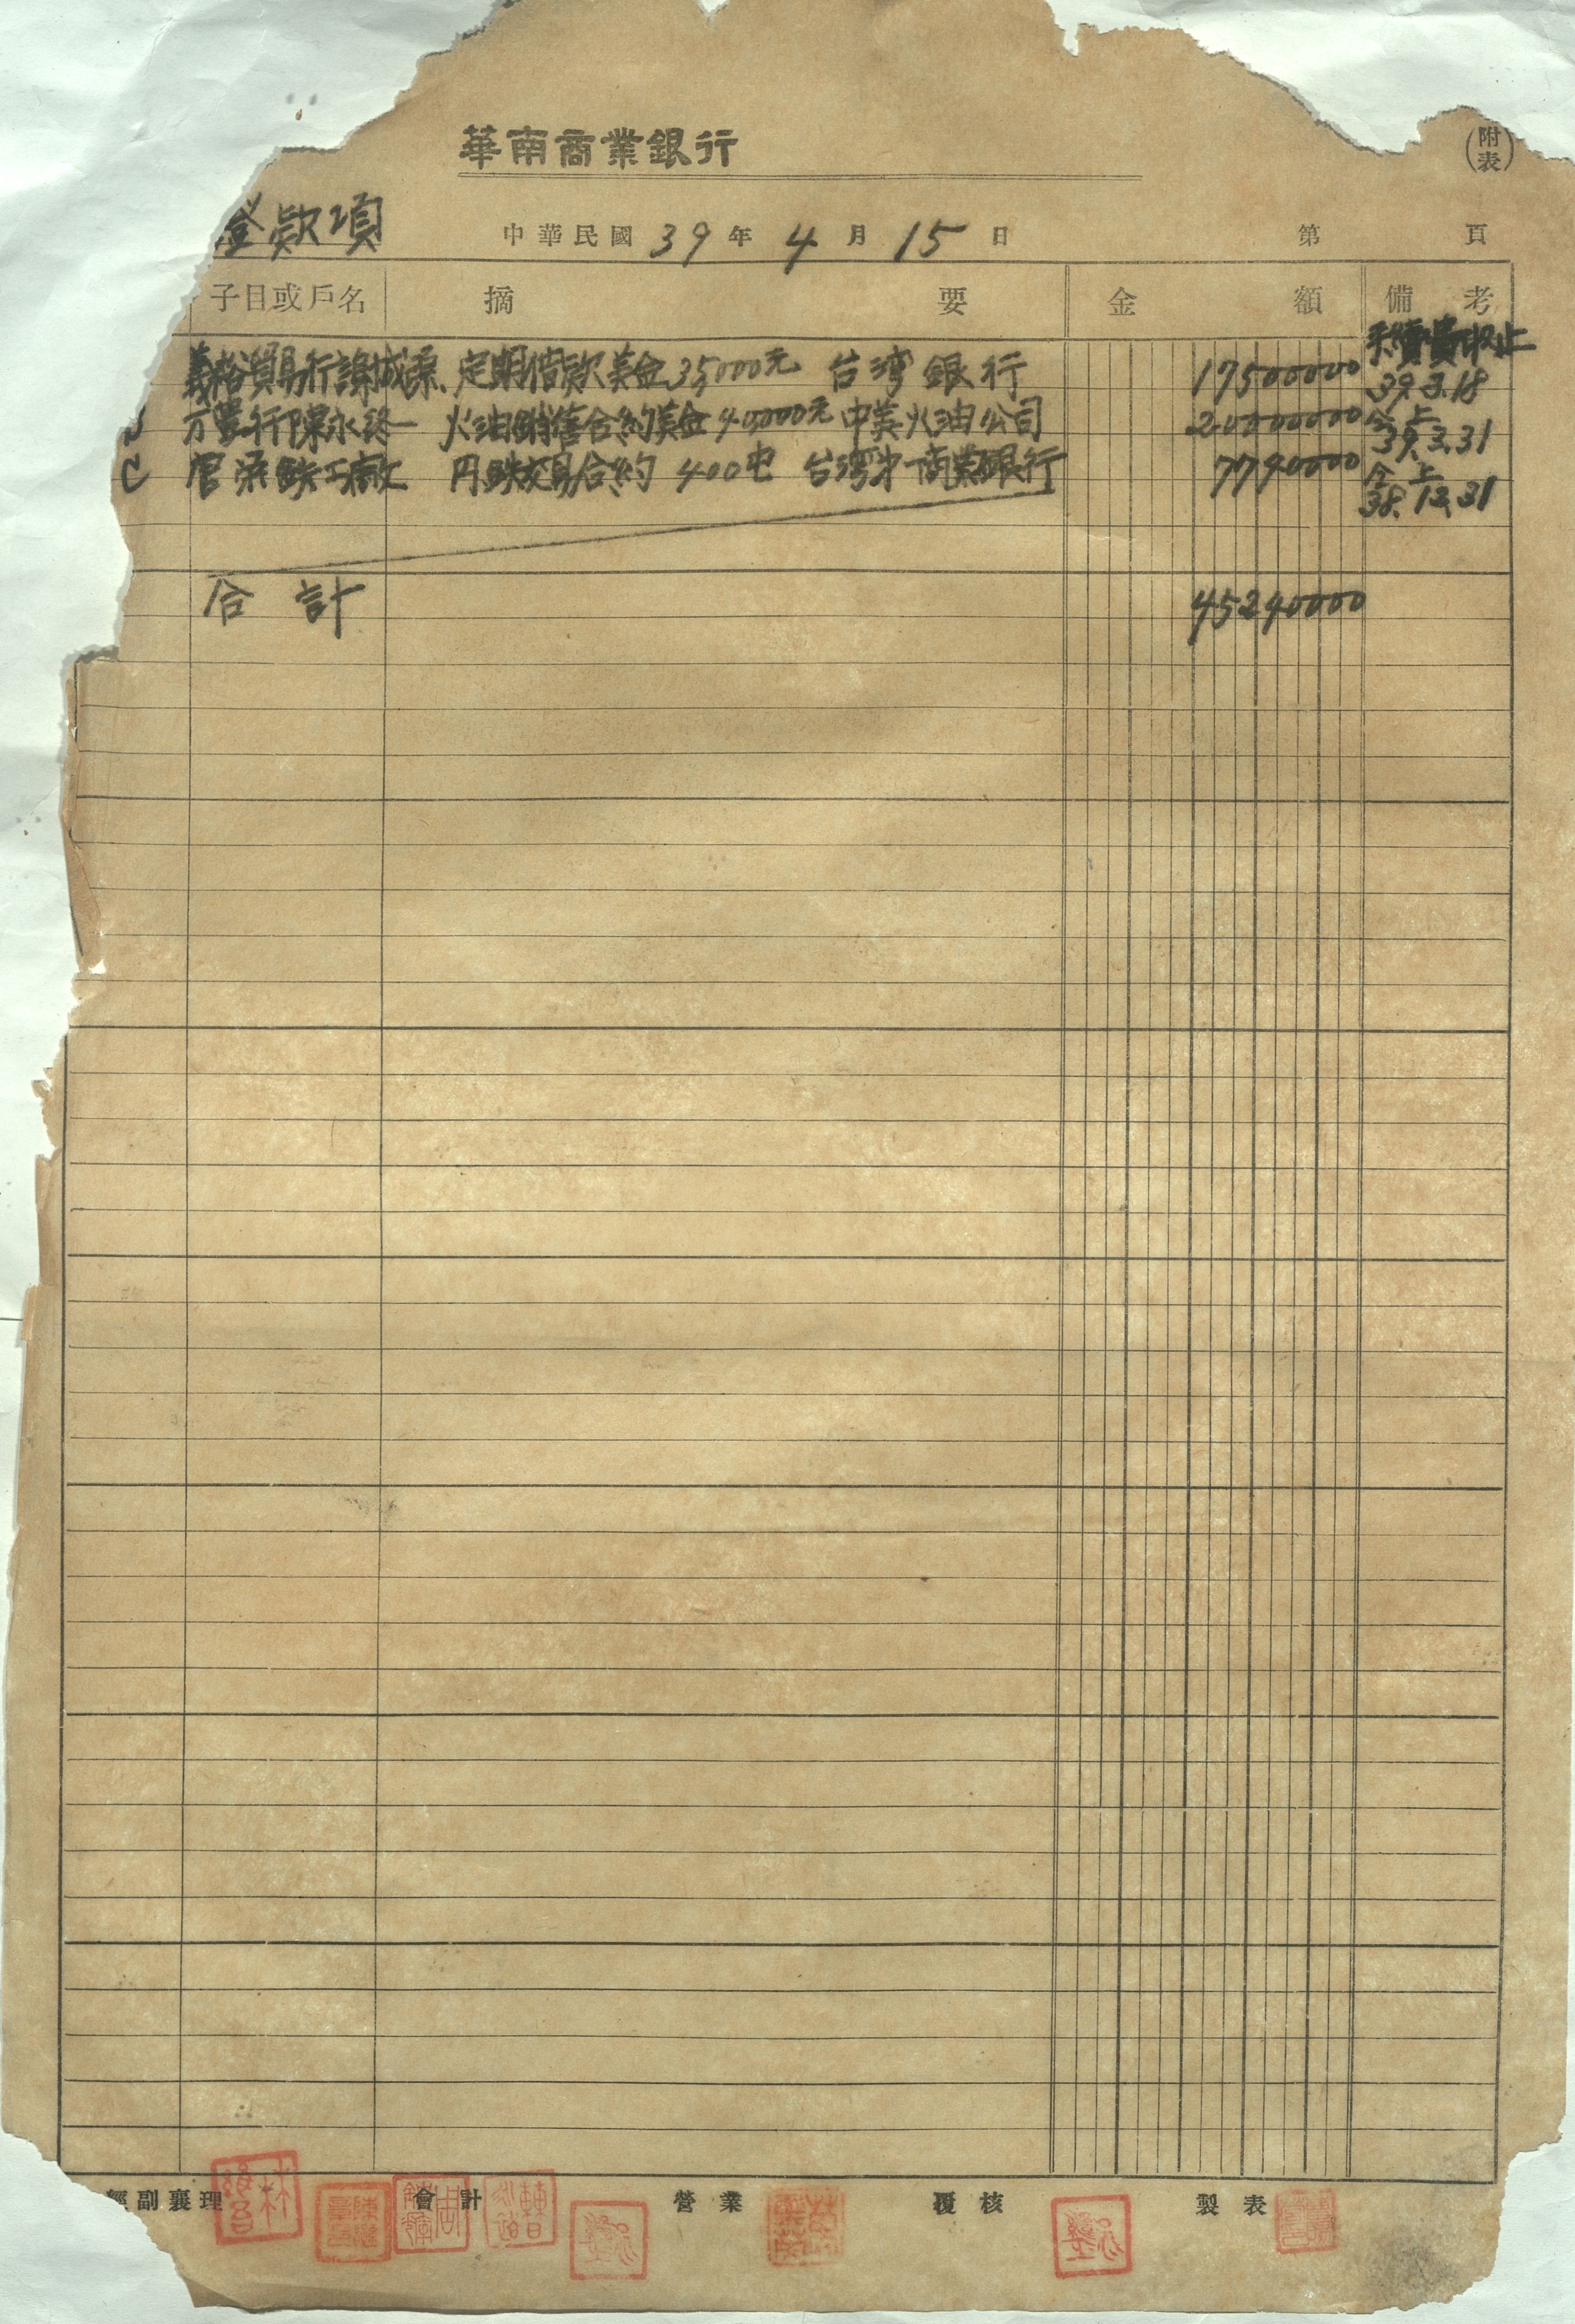 華南商業銀行
(附表)
證款項 中華民國39年4月15日 第 頁
子目或戶名 摘要 金額 備考
手續費收止
義裕貿易行謝成源 定期借款美金35,000元 台湾銀行 17500000 39.3.18
万豊行陳永終 火油銷售合約美金40,000元 中美火油公司 20000000 仝上
39.3.31
C 官 鉄工廠 円鉄交易合約 400屯 台湾才一商業銀行 7790000 仝上
38.12.31
合計 45290000
經副襄理 會計 營業 覆核 製表